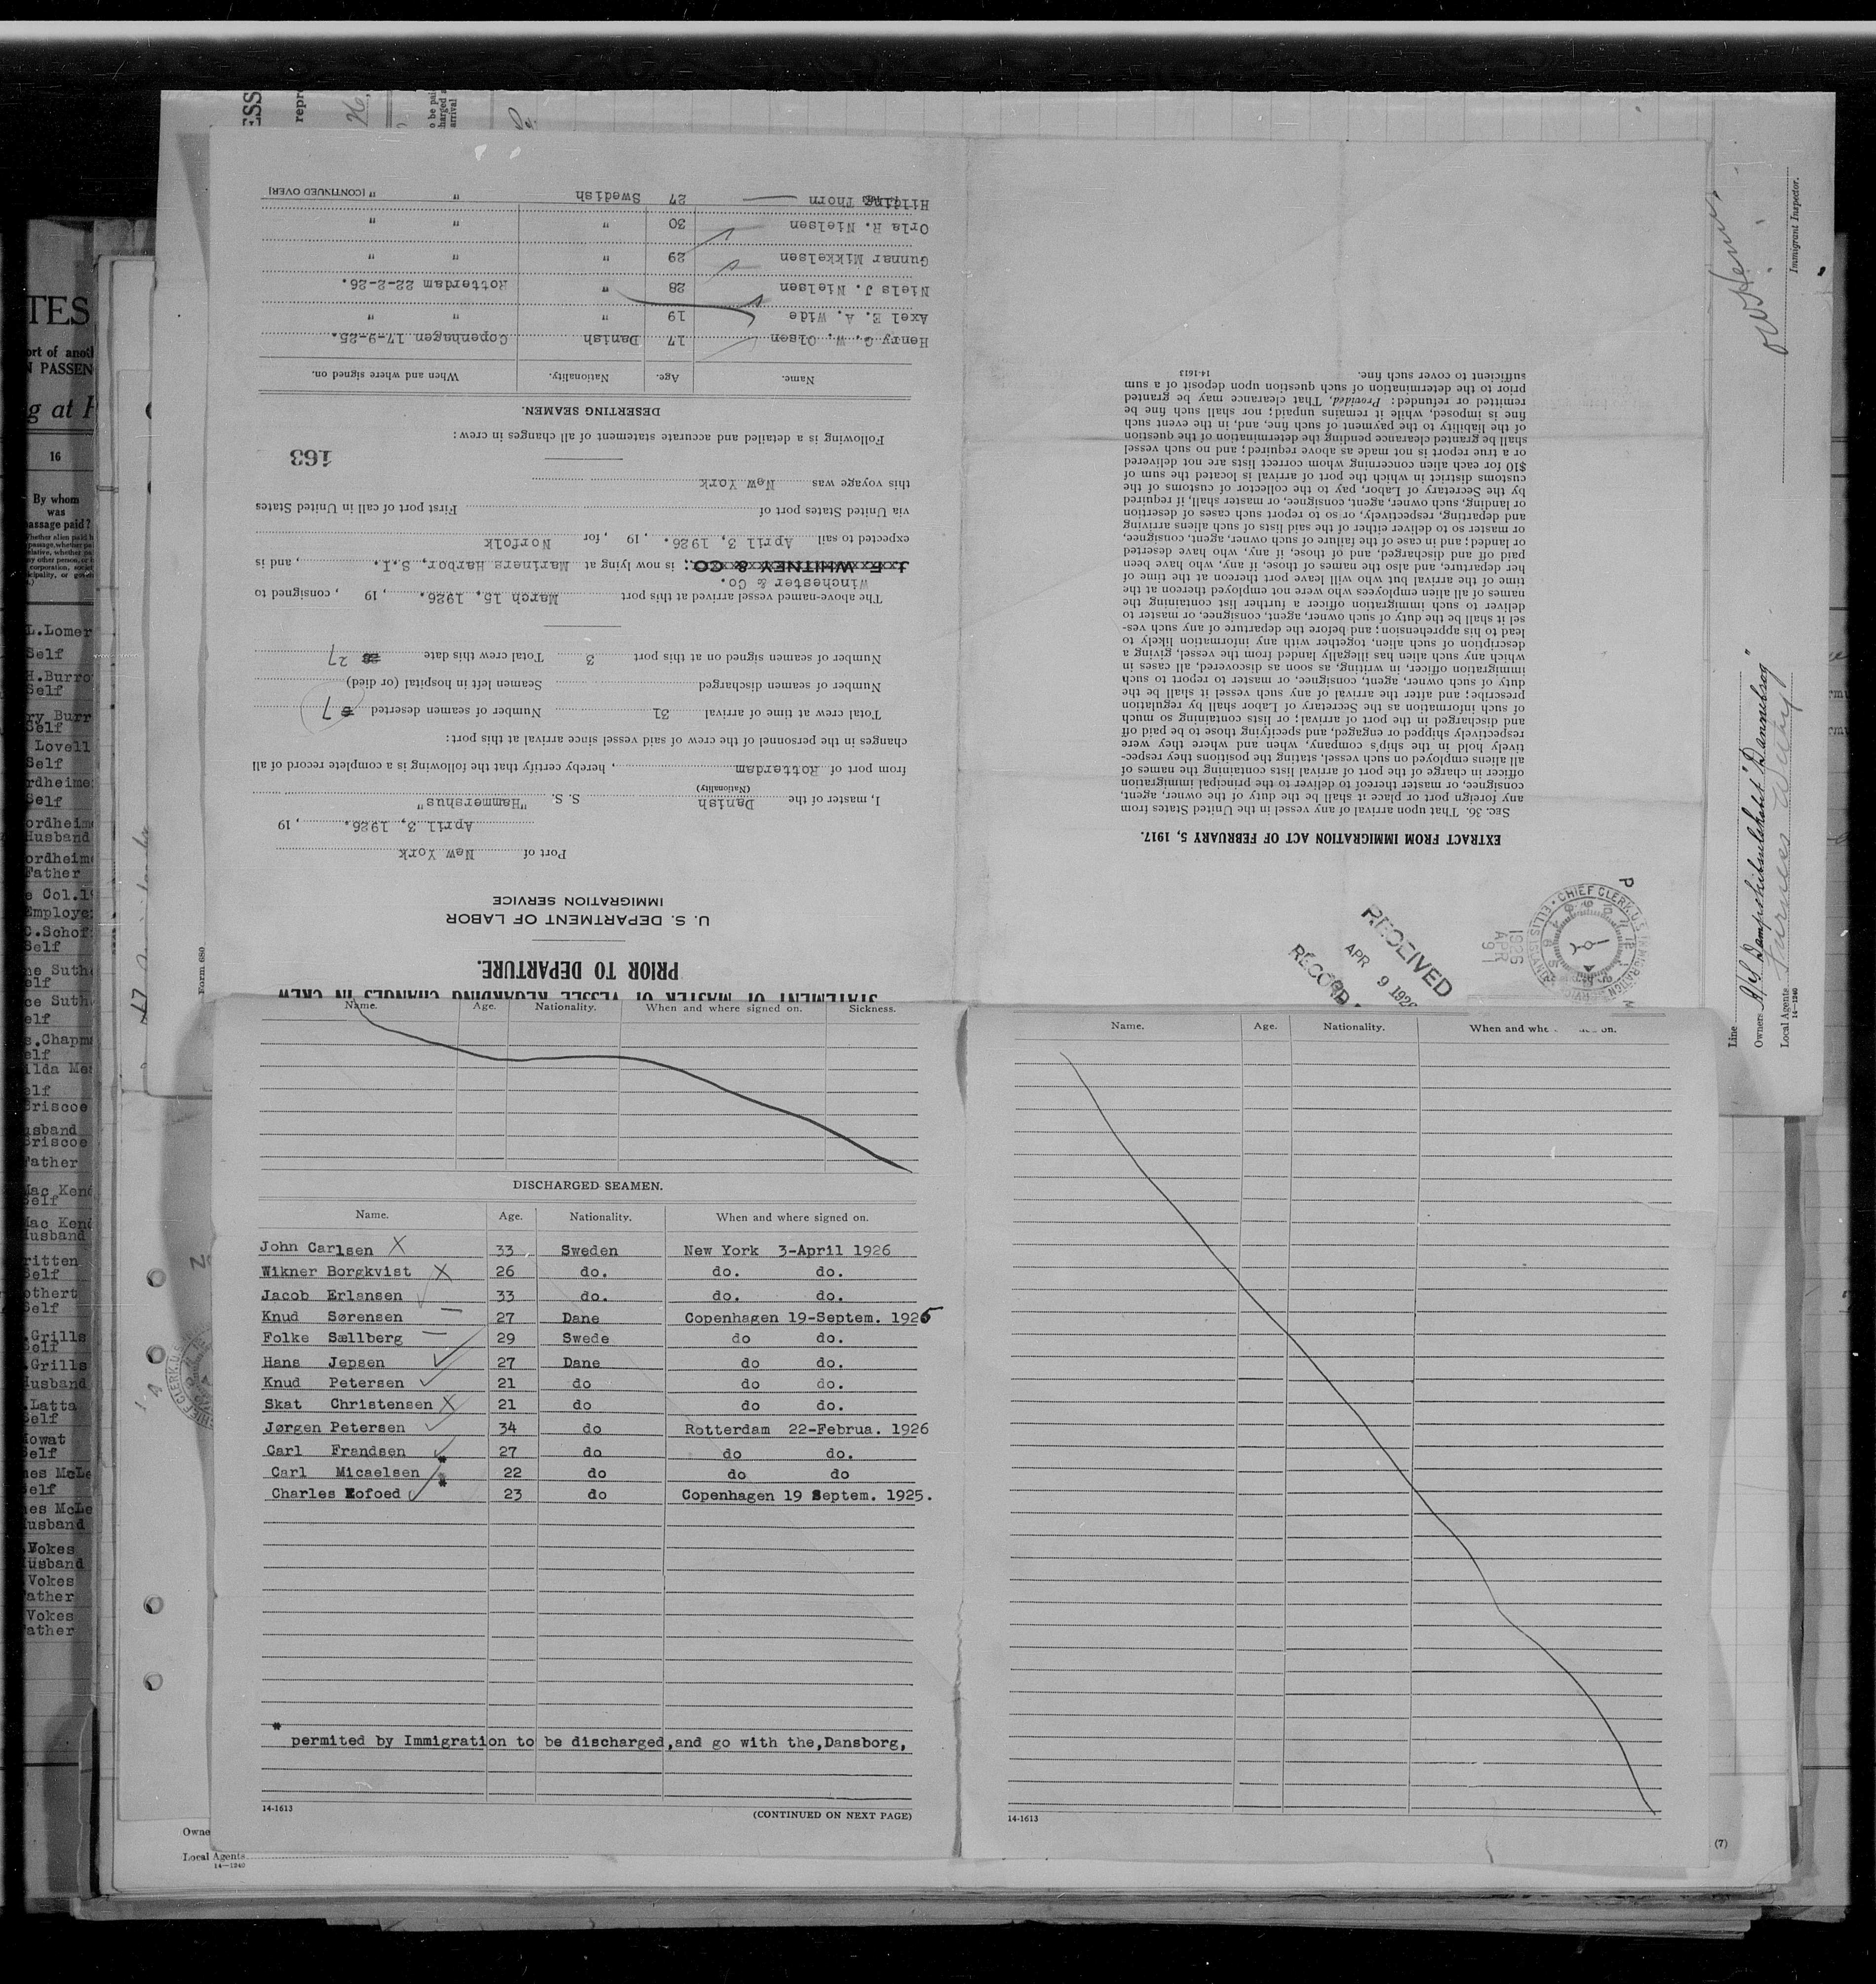 STATEMENT OF MASTER OF VESSEL REGARDING CHANGES IN CREW
PRIOR TO DEPARTURE.
U. S. DEPARTMENT OF LABOR
IMMIGRATION SERVICE
Form 680
Port of New York
April 3, 1926. , 19
I, master of the Danish S. S. "Hammershus"
(Nationality)
from port of Rotterdam , hereby certify that the following is a complete record of all
changes in the personnel of the crew of said vessel since arrival at this port:
Total crew at time of arrival 31 Number of seamen deserted 7
Number of seamen discharged Seamen left in hospital (or died)
Number of seamen signed on at this port 3 Total crew this date 27
The above-named vessel arrived at this port March 15. 1926. , 19 , consigned to
Winchester & Co.
J F WHITNEY & CO. is now lying at Mariners Harbor, S.I. , and is
expected to sail April 3, 1926. , 19 , for Norfolk
via United States port of First port of call in United States
this voyage was New York
163
Following is a detailed and accurate statement of all changes in crew:
DESERTING SEAMEN.
Name. Age. Nationality. When and where signed on.
Henry G. W. Olsen 17 Danish Copenhagen 17-9-25.
Axel E. A. Wide 19 " " "
Niels J. Nielsen 28 " Rotterdam 22-2-26.
Gunnar Mikkelsen 29 " " "
Orla R. Nielsen 30 " " "
Hilding Thorn 27 Swedish " "
[CONTINUED OVER]
EXTRACT FROM IMMIGRATION ACT OF FEBRUARY 5, 1917.
Sec. 36. That upon arrival of any vessel in the United States from
any foreign port or place it shall be the duty of the owner, agent,
consignee, or master thereof to deliver to the principal immigration
officer in charge of the port of arrival lists containing the names of
all aliens employed on such vessel, stating the positions they respec-
tively hold in the ship's company, when and where they were
respectively shipped or engaged, and specifying those to be paid off
and discharged in the port of arrival; or lists containing so much
of such information as the Secretary of Labor shall by regulation
prescribe; and after the arrival of any such vessel it shall be the
duty of such owner, agent, consignee, or master to report to such
immigration officer, in writing, as soon as discovered, all cases in
which any such alien has illegally landed from the vessel, giving a
description of such alien, together with any information likely to
lead to his apprehension; and before the departure of any such ves-
sel it shall be the duty of such owner, agent, consignee, or master to
deliver to such immigration officer a further list containing the
names of all alien employees who were not employed thereon at the
time of the arrival but who will leave port thereon at the time of
her departure, and also the names of those, if any, who have been
paid off and discharged, and of those, if any, who have deserted
or landed; and in case of the failure of such owner, agent, consignee,
or master so to deliver either of the said lists of such aliens arriving
and departing, respectively, or so to report such cases of desertion
or landing, such owner, agent, consignee, or master shall, if required
by the Secretary of Labor, pay to the collector of customs of the
customs district in which the port of arrival is located the sum of
$10 for each alien concerning whom correct lists are not delivered
or a true report is not made as above required; and no such vessel
shall be granted clearance pending the determination of the question
of the liability to the payment of such fine, and, in the event such
fine is imposed, while it remains unpaid; nor shall such fine be
remitted or refunded: Provided, That clearance may be granted
prior to the determination of such question upon deposit of a sum
sufficient to cover such fine.
14-1613
RECEIVED
APR 9 1926
RECORD
CHIEF CLERK, U.S. IMMIGRATION SERVICE ELLIS ISLAND
1926 APR 9
Immigrant Inspector.
Line
Owners
Local Agents
14—1240
Name. Age. Nationality. When and where signed on. Sickness.
DISCHARGED SEAMEN.
Name. Age. Nationality. When and where signed on.
John Carlsen X 33 Sweden New York 3-April 1926
Wikner Borgkvist X 26 do. do. do.
Jacob Erlansen 33 do. do. do.
Knud Sørensen 27 Dane Copenhagen 19-Septem. 1925
Folke Sællberg 29 Swede do do.
Hans Jepsen 27 Dane do do.
Knud Petersen 21 do do do.
Skat Christensen X 21 do do do.
Jørgen Petersen 34 do Rotterdam 22-Februa. 1926
Carl Frandsen * 27 do do do.
Carl Micaelsen * 22 do do do
Charles Kofoed 23 do Copenhagen 19 Septem. 1925.
* permited by Immigration to be discharged,and go with the,Dansborg,
14-1613
(CONTINUED ON NEXT PAGE)
Name. Age. Nationality. When and whe on.
14-1613
(7)
Owne
Local Agents
14—1240
TES
ort of anot
N PASSEN
g at H
16
By whom
was
passage paid?
L.Lomer
Self
H.Burro
Self
ry Burr
Self
Lovell
Self
rdheime
Self
ordheim
Husband
ordheim
Father
e Col.1
Employe
C.Schof
Self
ne Suth
elf
ce Suth
elf
s.Chapm
elf
ilda Me
elf
Briscoe
usband
Briscoe
Father
Mac Kend
Self
Mac Kend
Husband
ritten
Self
othert
Self
.Grills
Self
.Grills
Husband
.Latta
Self
Mowat
Self
nes McLe
Self
nes McLe
Husband
.Vokes
Husband
.Vokes
ather
Vokes
ather